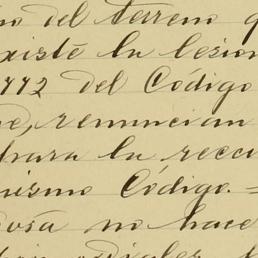 del terreno q
xiste la lesion
1772 del Código
renuncian
para la resci
mismo Código.=
no hace